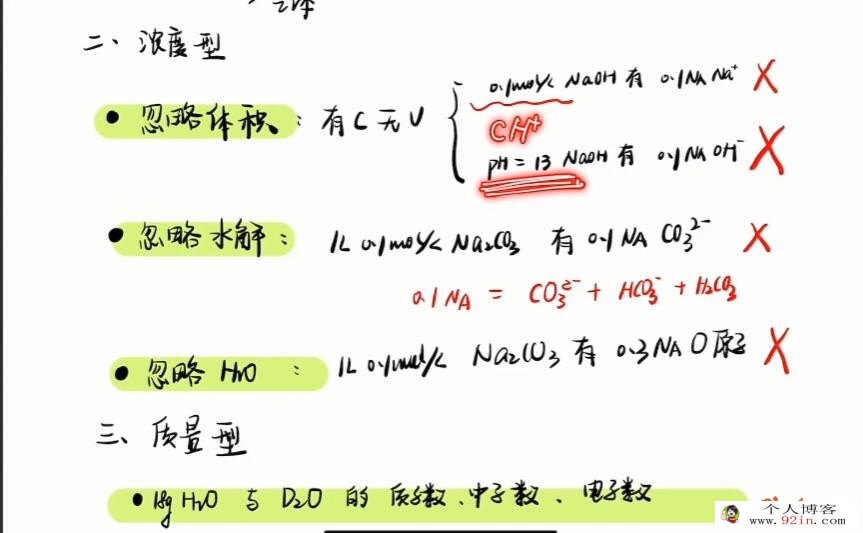 二、浓度型
• 忽略体积: 有C无V { 0.1mol/L NaOH 有 0.1NA Na⁺ X
CH⁺
pH = 13 NaOH 有 0.1NA OH⁻ X
• 忽略水解: 1L 0.1mol/L Na₂CO₃ 有 0.1NA CO₃²⁻ X
0.1NA = CO₃²⁻ + HCO₃⁻ + H₂CO₃
• 忽略H₂O: 1L 0.1mol/L Na₂CO₃ 有 0.3NA O原子 X
三、质量型
• 18g H₂O 与 D₂O 的 质子数、中子数、电子数
个人博客
www.92in.com